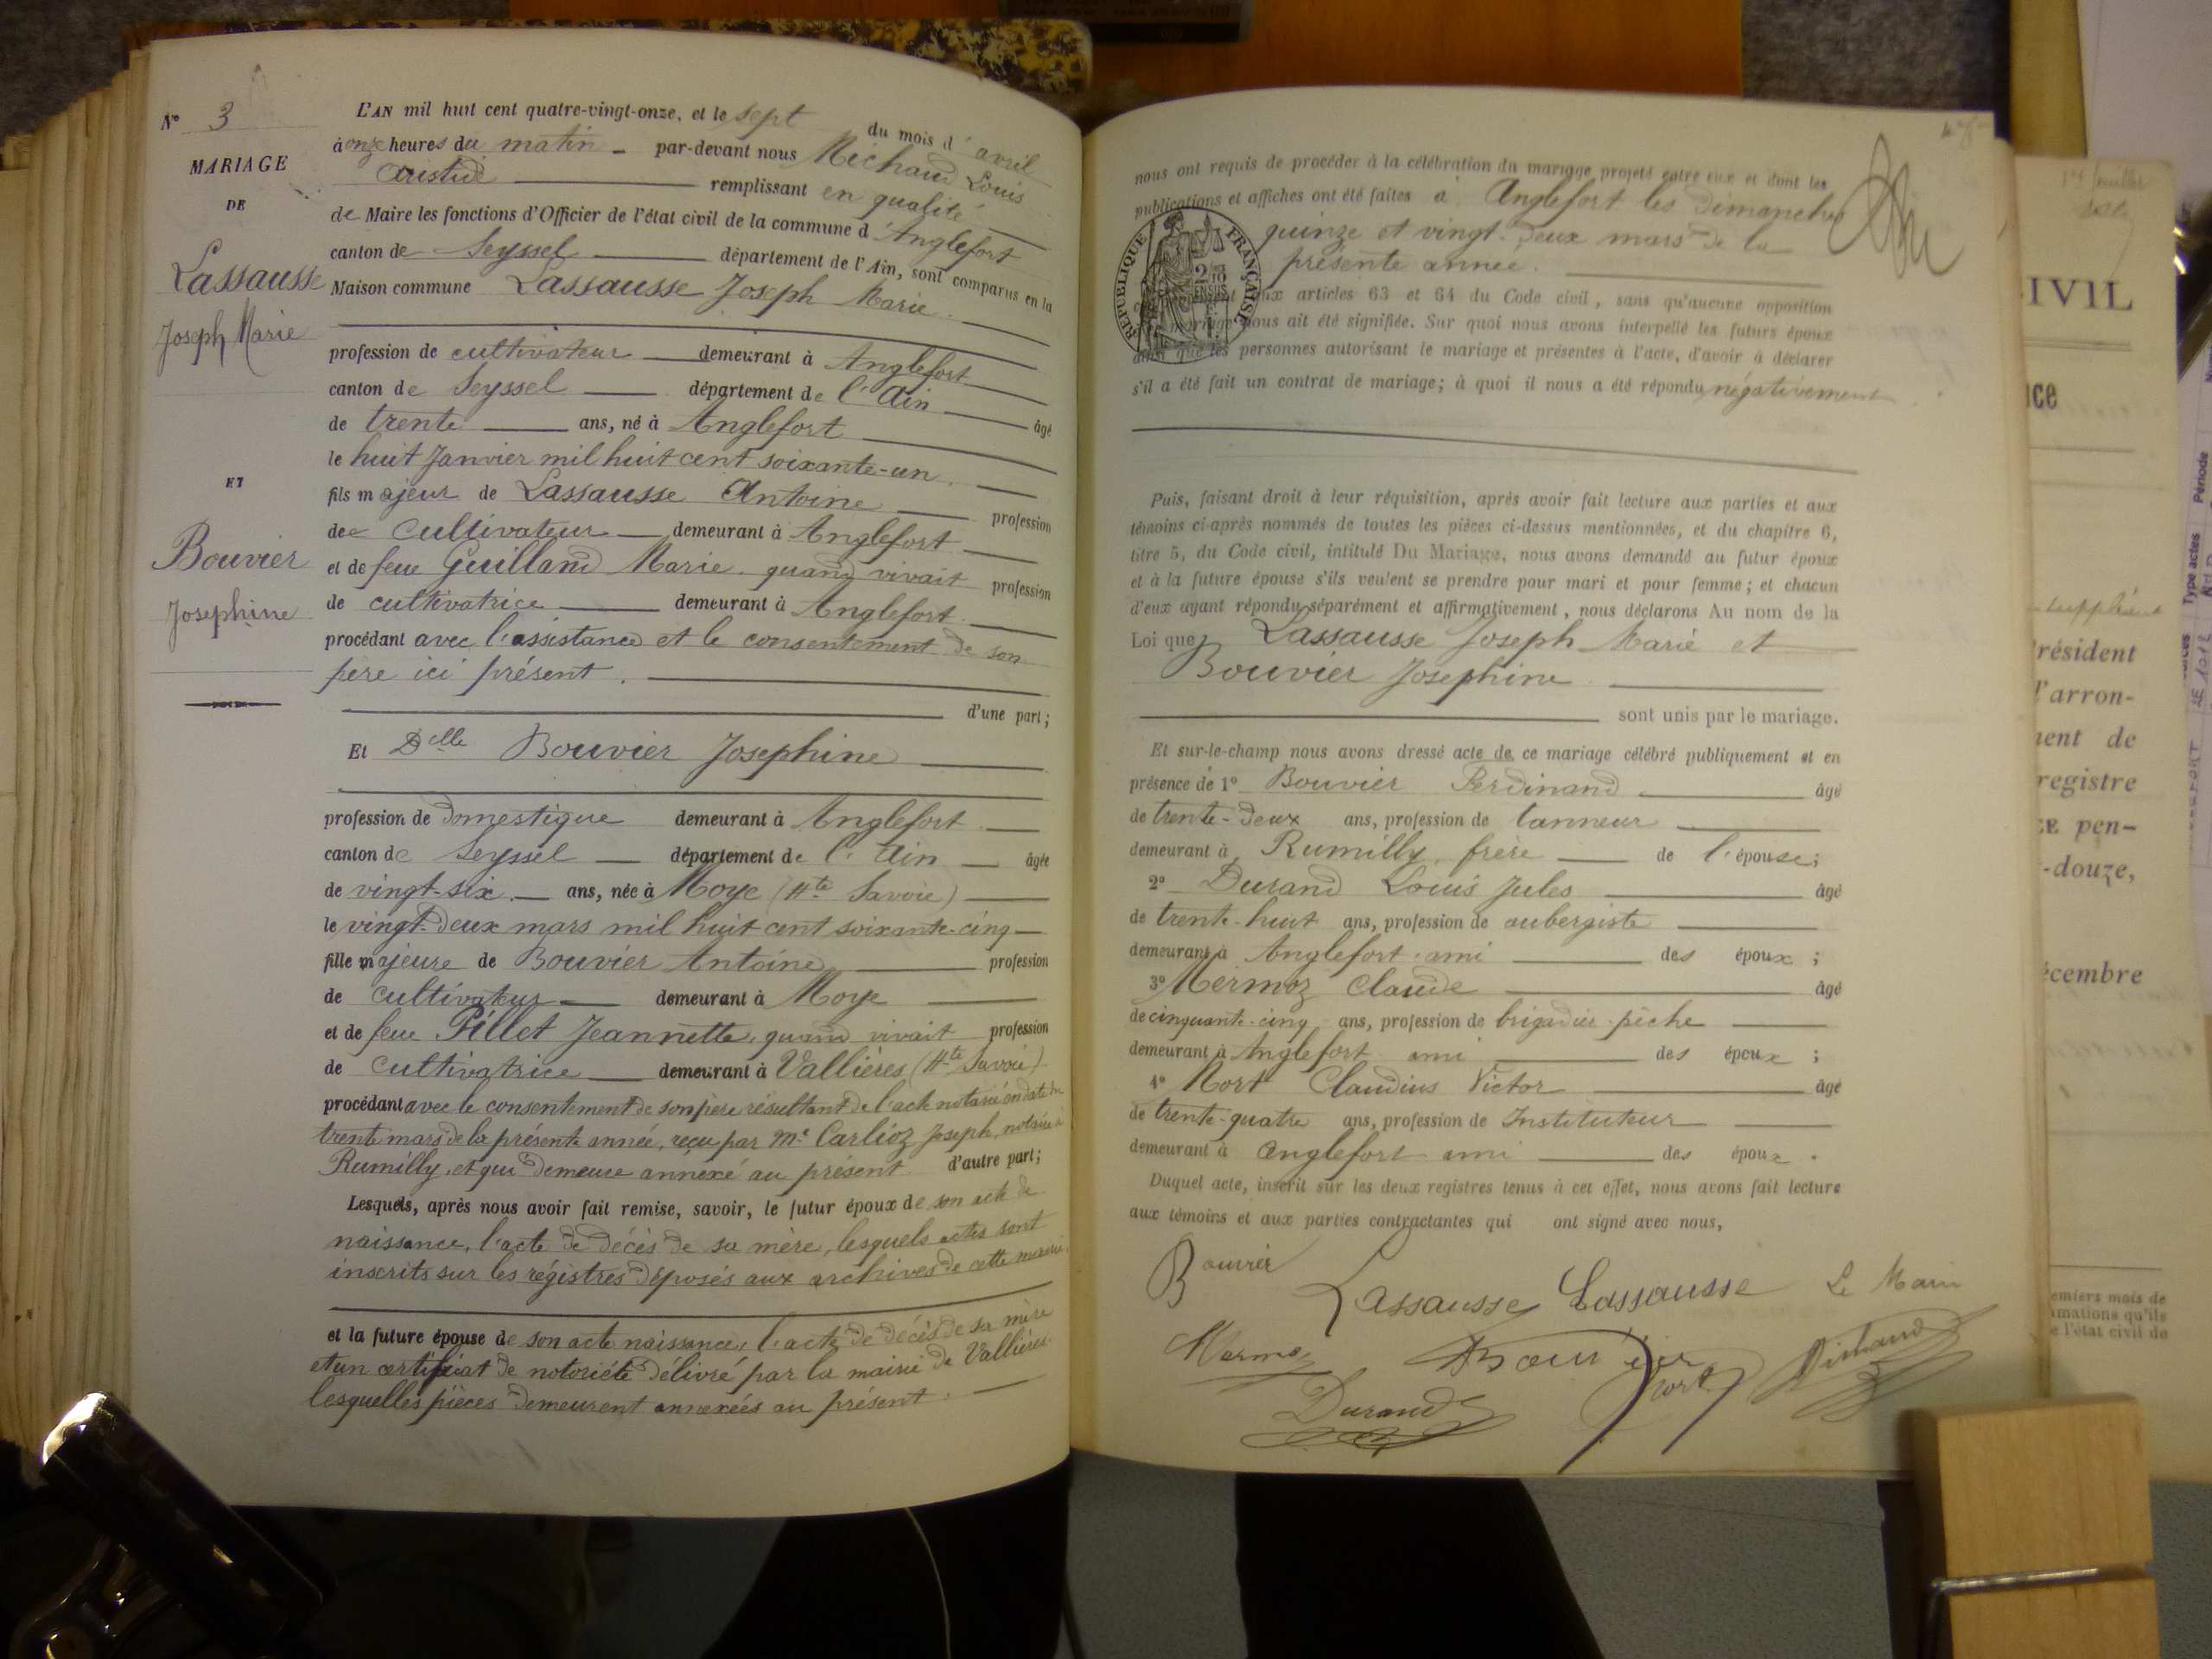 N° 3
MARIAGE
DE
Lassausse
Joseph Marie
ET
Bouvier
Josephine
L'AN mil huit cent quatre-vingt-onze, et le sept du mois d'avril
à onze heures du matin - par-devant nous Michaud Louis
Aristide remplissant en qualité
de Maire les fonctions d'Officier de l'état civil de la commune d'Anglefort
canton de Seyssel département de l'Ain, sont comparus en la
Maison commune Lassausse Joseph Marie.
profession de cultivateur demeurant à Anglefort
canton de Seyssel département de l'Ain âgé
de trente ans, né à Anglefort
le huit Janvier mil huit cent soixante-un.
fils majeur de Lassausse Antoine profession
de cultivateur demeurant à Anglefort
et de feue Guilland Marie. quand vivait profession
de cultivatrice demeurant à Anglefort.
procédant avec l'assistance et le consentement de son
père ici présent.
d'une part;
Et Delle Bouvier Josephine
profession de domestique demeurant à Anglefort.
canton de Seyssel département de l'Ain âgée
de vingt-six. ans, née à Moye (Hte Savoie)
le vingt-deux mars mil huit cent soixante-cinq
fille majeure de Bouvier Antoine profession
de cultivateur demeurant à Moye
et de feue Pillet Jeannette, quand vivait profession
de cultivatrice demeurant à Vallières (Hte Savoie)
procédant avec le consentement de son père résultant de l'acte notarié en date du
trente mars de la présente année, reçu par Me Carlioz Joseph, notaire à
Rumilly, et qui demeure annexé au présent d'autre part;
Lesquels, après nous avoir fait remise, savoir, le futur époux de son acte de
naissance, l'acte de décès de sa mère, lesquels actes sont
inscrits sur les régistres déposés aux archives de cette mairie.
et la future épouse de son acte naissance, l'acte de décès de sa mère
et un certificat de notoriété délivré par la mairie de Vallières
lesquelles pièces demeurent annexées au présent.
nous ont requis de procéder à la célébration du mariage projeté entre eux et dont les
publications et affiches ont été faites à Anglefort les dimanches
quinze et vingt-deux mars de la
présente année.
RÉPUBLIQUE FRANÇAISE
aux articles 63 et 64 du Code civil, sans qu'aucune opposition
mariage nous ait été signifiée. Sur quoi nous avons interpellé les futurs époux
ainsi que les personnes autorisant le mariage et présentes à l'acte, d'avoir à déclarer
s'il a été fait un contrat de mariage; à quoi il nous a été répondu négativement.
Puis, faisant droit à leur réquisition, après avoir fait lecture aux parties et aux
témoins ci-après nommés de toutes les pièces ci-dessus mentionnées, et du chapitre 6,
titre 5, du Code civil, intitulé Du Mariage, nous avons demandé au futur époux
et à la future épouse s'ils veulent se prendre pour mari et pour femme; et chacun
d'eux ayant répondu séparément et affirmativement, nous déclarons Au nom de la
Loi que Lassausse Joseph Marie et
Bouvier Josephine
sont unis par le mariage.
Et sur-le-champ nous avons dressé acte de ce mariage célébré publiquement et en
présence de 1° Bouvier Ferdinand âgé
de trente-deux ans, profession de tanneur
demeurant à Rumilly, frère de l'épouse;
2° Durand Louis Jules âgé
de trente-huit ans, profession de aubergiste
demeurant à Anglefort ami des époux;
3° Mermoz Claude âgé
de cinquante-cinq ans, profession de brigadier-pêche
demeurant à Anglefort ami des époux;
4° Mort Claudius Victor âgé
de trente-quatre ans, profession de Instituteur
demeurant à Anglefort ami des époux.
Duquel acte, inscrit sur les deux registres tenus à cet effet, nous avons fait lecture
aux témoins et aux parties contractantes qui ont signé avec nous,
Bouvier
Lassausse Lassausse Le Maire
Mermoz Bouvier Mort Michaud
Durand
CIVIL
Président
l'arron-
ment de
registre
pen-
-douze,
décembre
emiers mois de
mations qu'ils
e l'état civil de
Type actes
Période